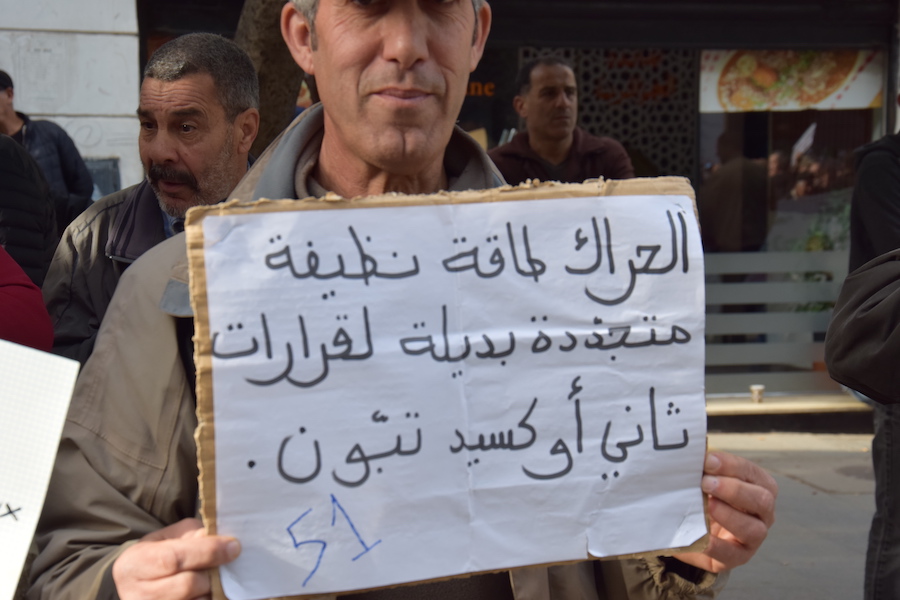 الحراك طاقة نظيفة
متجدّدة بديلة لقرارات
ثاني أوكسيد تبّون .
51